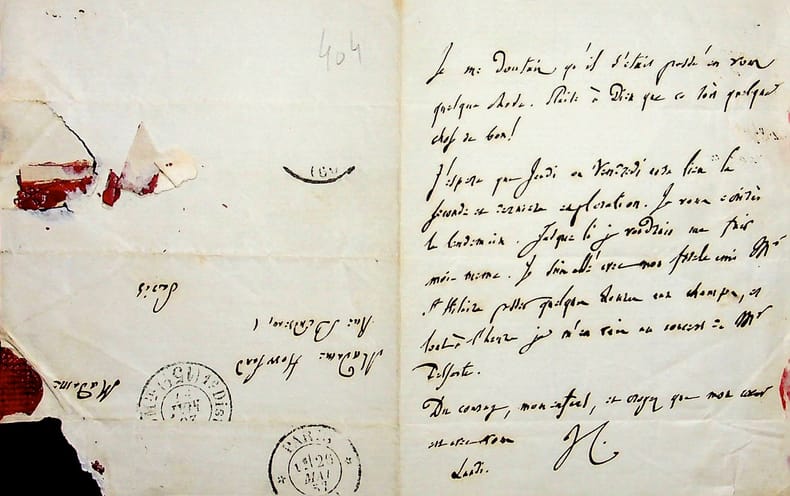 404
Madame
Madame Howland
Rue
Paris
PARIS
29
MAI
57
Je me doutais qu'il s'était passé en vous
quelque chose. Plaise à Dieu que ce soit quelque
chose de bon!
J'espère que Jeudi ou Vendredi aura lieu la
seconde et dernière exploration. Je vous écrirai
le lendemain. Jusque là je voudrais me fuir
moi-même. Je suis allé avec mon fidèle ami Mr
St Hilaire passer quelques heures aux champs, et
tout à l'heure je m'en vais au concert de Mr
Delsarte.
Du courage, mon enfant, et croyez que mon cœur
est avec vous
Lundi.